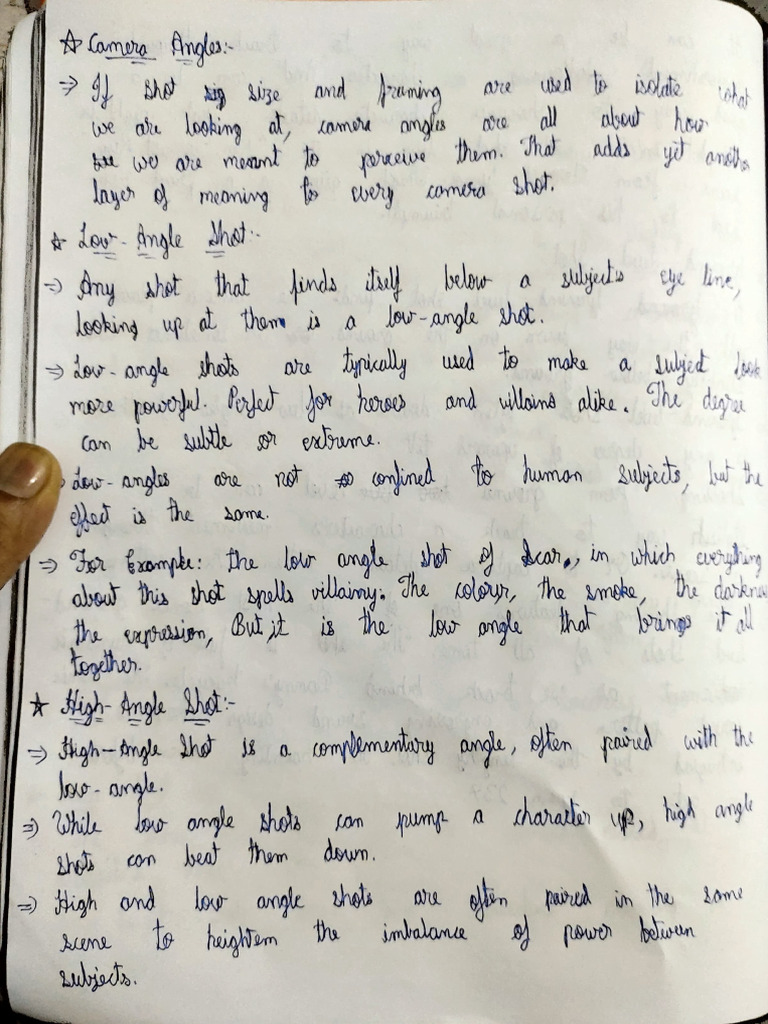 ☆ Camera Angles:-
⇒ If shot size and framing are used to isolate what
we are looking at, camera angles are all about how
we are meant to perceive them. That adds yet another
layer of meaning to every camera shot.
☆ Low-Angle Shot:-
⇒ Any shot that finds itself below a subject's eye line,
looking up at them is a low-angle shot.
⇒ Low-angle shots are typically used to make a subject look
more powerful. Perfect for heroes and villains alike. The degree
can be subtle or extreme.
Low-angles are not confined to human subjects, but the
effect is the same.
⇒ For Example: the low angle shot of Scar, in which everything
about this shot spells villainy. The colour, the smoke, the darkness
the expression, But it is the low angle that brings it all
together.
☆ High-Angle Shot:-
⇒ High-Angle Shot is a complementary angle, often paired with the
low-angle.
⇒ While low angle shots can pump a character up, high angle
shots can beat them down.
⇒ High and low angle shots are often paired in the same
scene to heightem the imbalance of power between
subjects.